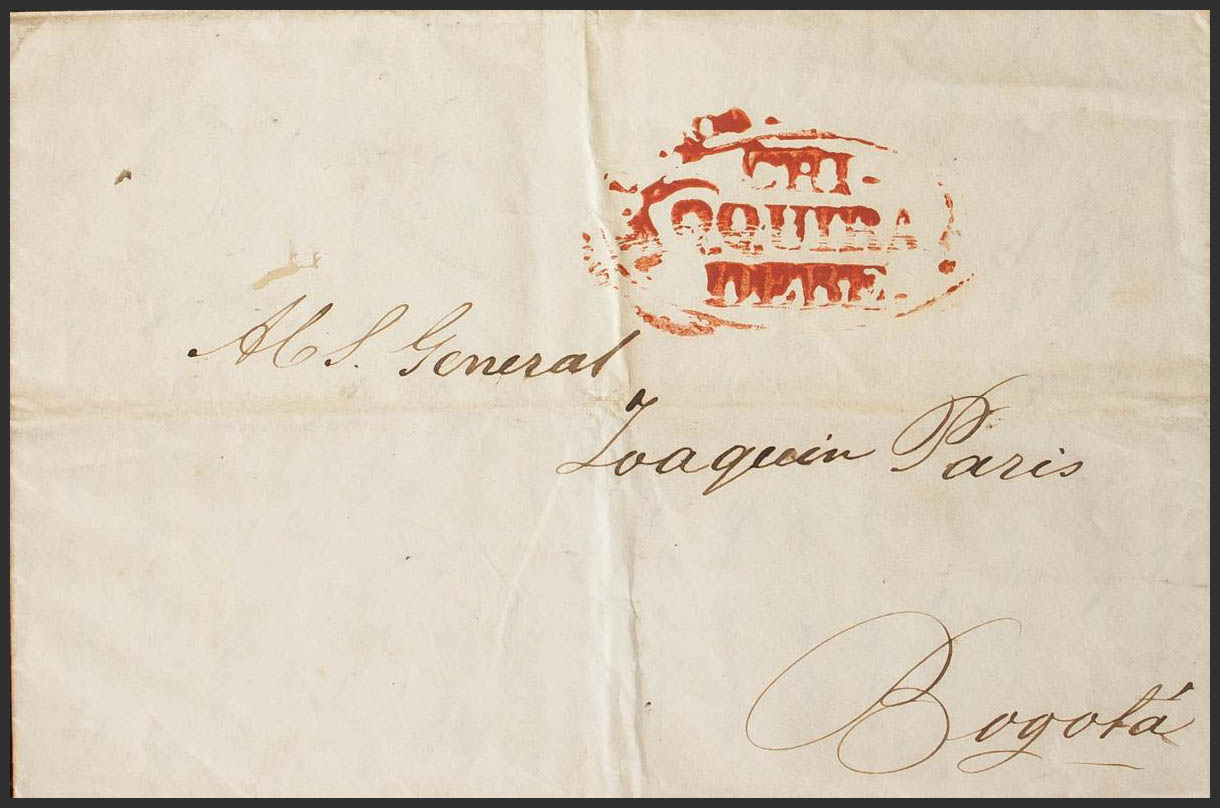 CHI-
QQUIRA
DEBE.
Al S. General
Joaquin Paris
Bogotá